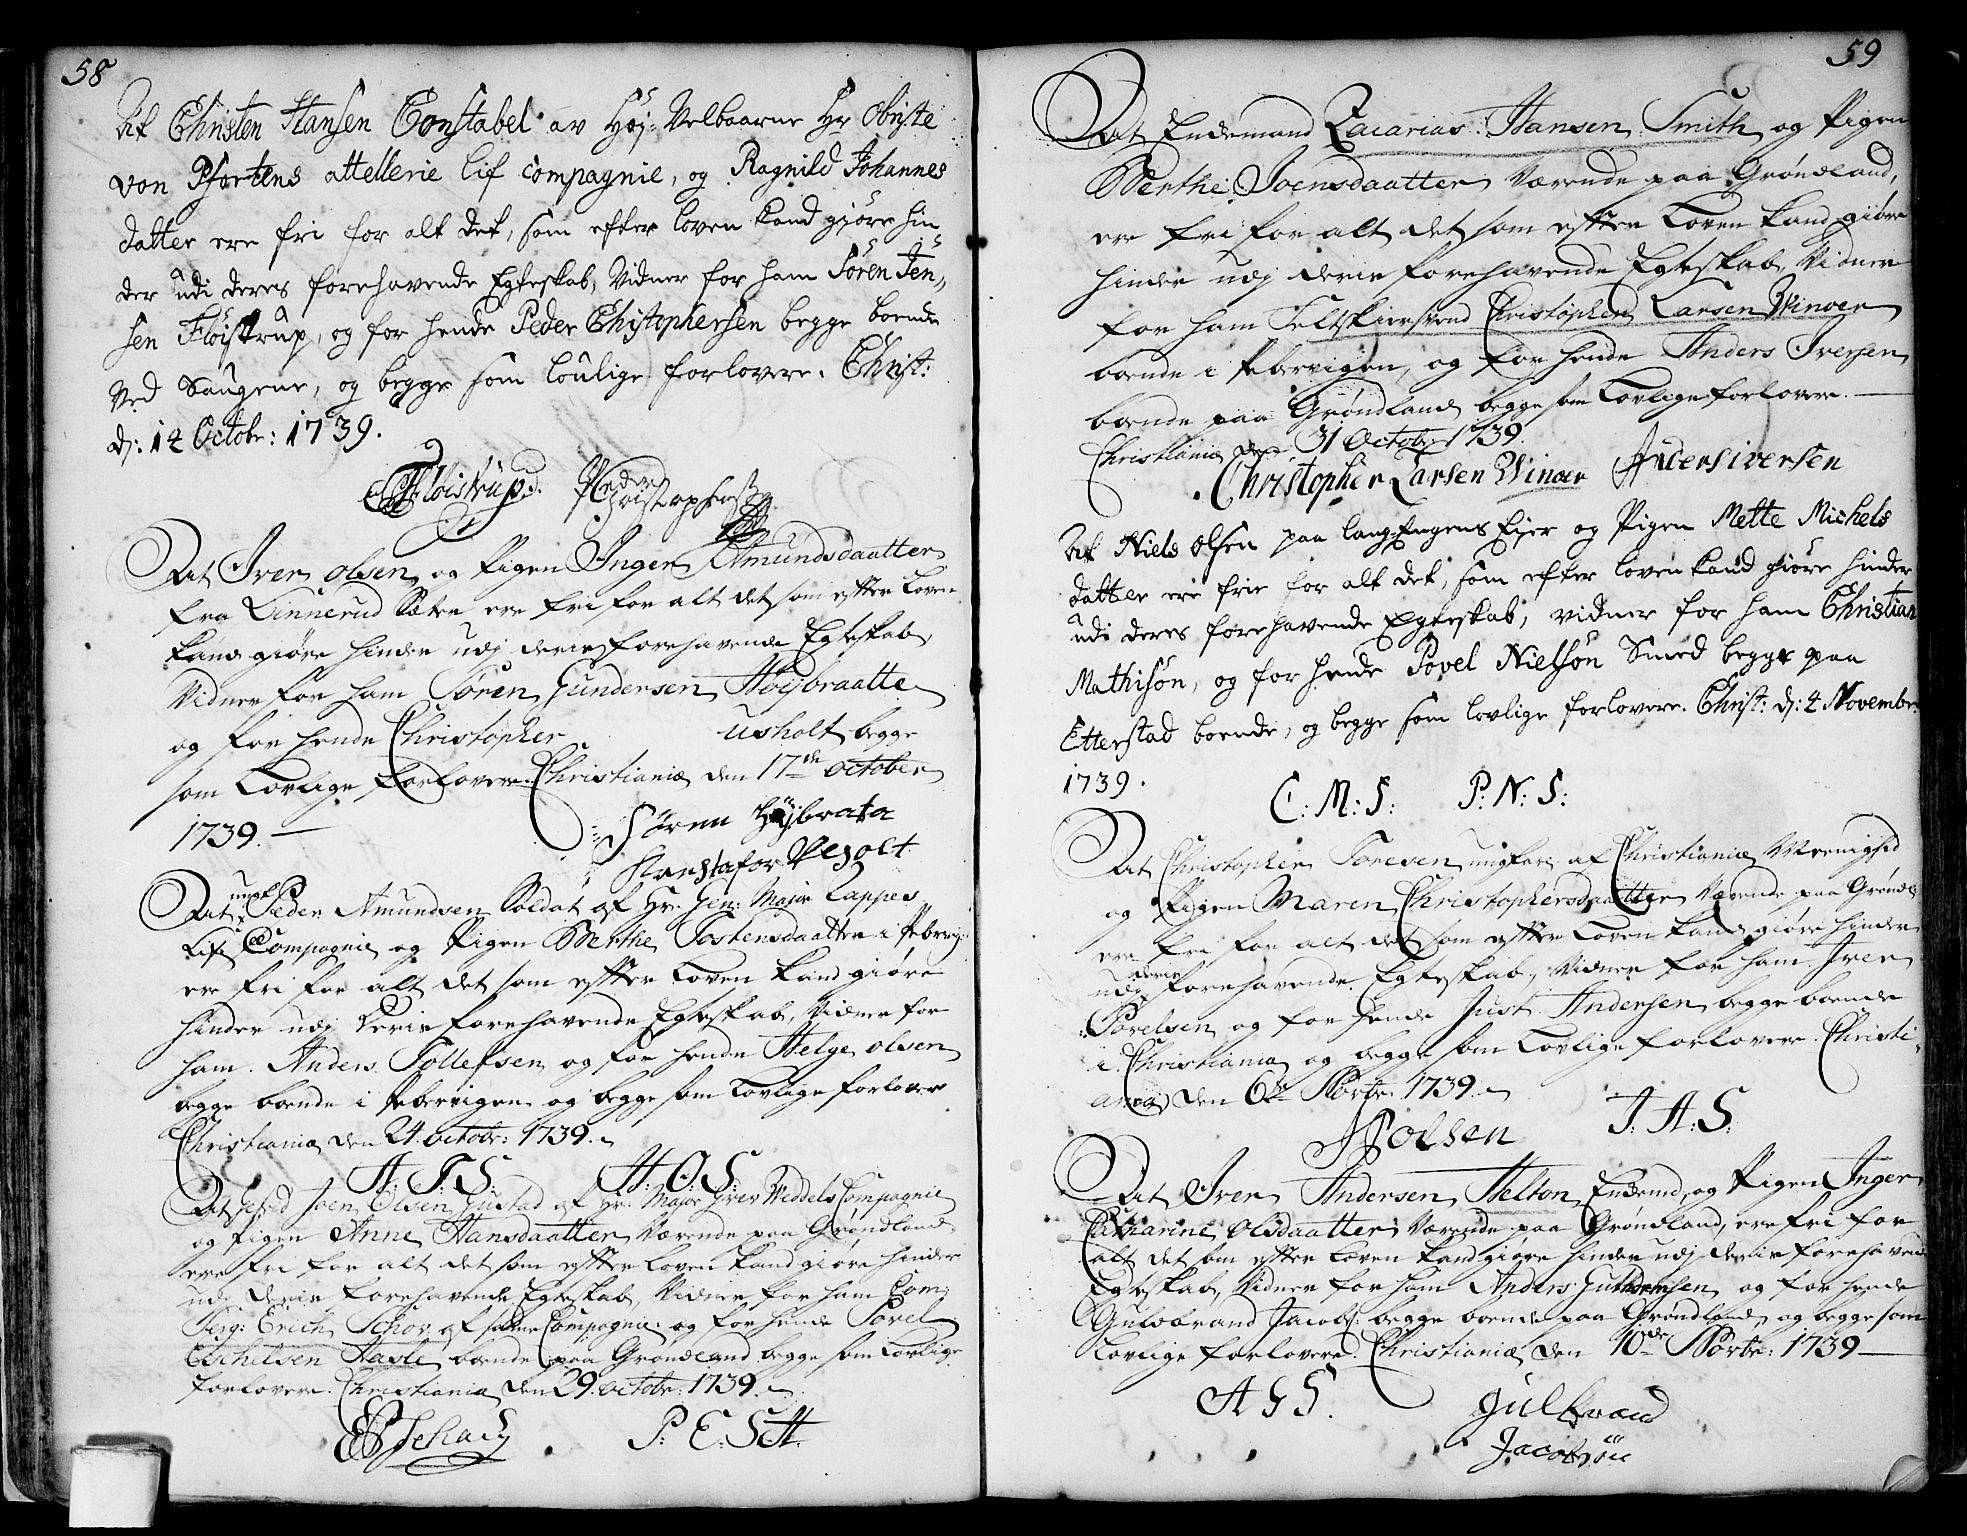 58
At Christen Hansen Constabel av Høj-Velbaarne Hr Obriste
von Pfortens attellerie lif compagnie, og Ragnild Johannes
datter ere fri for alt det, som efter loven kand gjöre hin-
der udi deres forehavende Egteskab, Vidner for ham Sören Jen-
sen Flöistrup, og for hende Peder Christophersen begge boende
ved Saugene, og begge som loulige forlovere. Christ:
d: 14 Octobr: 1739.
Flöistrup. Peder
Christophers:
At Iver Olsen og Pigen Inger Amundsdaatter
fra Linnerud Sæter ere fri for alt det som efter Loven
kand giøre hinder udj deris forehavende Egteskab,
Vidner for ham Søren Gundersen Høijbraatte
og for hende Christopher usholt begge
som Lovlige forlovere. Christianiæ den 17de October
1739.
Søren Høijbrata
Christafor
At ungk: Peder Amundsen Soldat af Hr. Gen: Major Lappes
Lifs Compagnie og Pigen Berthe Tostensdaatter i Pebervig:
ere fri for alt det som efter Loven kand giøre
hinder udj deris forehavende Egteskab, Vidner for
ham Anders Tollefsen og for hende Helge Olsen
begge boende i Pebervigen og begge som Lovlige forlover
Christianiæ den 24 octobr: 1739.
A. T. S. H. O. S.
At Joen Olsen Gustad af Hr. Major Grev Weddels Compagnie
og Pigen Anne Hansdaatter Værende paa Grøndland
ere fri for alt det som efter Loven kand giøre hinder
udj deris forehavende Egteskab, Vidner for ham Com:
Serg: Erich Schov af samme Compagnie og for hende Povel
Eschilsen Hasle boende paa Grøndland begge som Lovlige
forlovere. Christiania den 29. octobr: 1739.
P: E: S H.
59
At Enckemand Zacarias Hansen Smith og Pigen
Berthe Joensdaatter Værende paa Grøndland,
ere fri for alt det som efter Loven kand giøre
hinder udj deris forehavende Egteskab, Vidner
for ham Feltskiersvend Christopher Larsen Winoer
boende i Pebervigen, og for hende Anders Iversen
boende paa Grøndland begge som Lovlige forlovere.
Christianiæ den 31 October 1739.
Christopher Larsen Winoer Anders iversen
At Niels Olsen paa langEngens Eier og Pigen Mette Michels
datter ere frie for alt det, som efter loven kand giöre hinder
udi deres forehavende Egteskab, vidner for ham Christian
Mathisön, og for hende Povel Nielsön Smed begge paa
Etterstad boende, og begge som lovlige forlovere. Christ: d: 4 Novembr:
1739.
C: M: S: P: N: S:
At Christopher Toresen ungkarl af Christianiæ Meenighed
og Pigen Maren Christophersdaatter Værende paa Grøndl:
ere fri for alt det som efter Loven kand giøre hinder
udj deris forehavende Egteskab, Vidner for ham Iver
Povelsen og for hende Just Andersen begge boende
i Christiania og begge som Lovlige forlovere. Christi-
ania den 6te Novbr: 1739.
J. A. S.
At Iver Andersen Helton Enckemd, og Pigen Inger
Catharine Olsdaatter Værende paa Grøndland, ere fri for
alt det som efter Loven kand giøre hinder udj deris forehavend
Egteskab, Vidner for ham Anders Gundersen og for hende
Gulbrand Jacobs: begge boende paa Grøndland, og begge som
Lovlige forlovere. Christianiæ den 10de Novbr: 1739
A G S. Gulbrand
Jacobsön